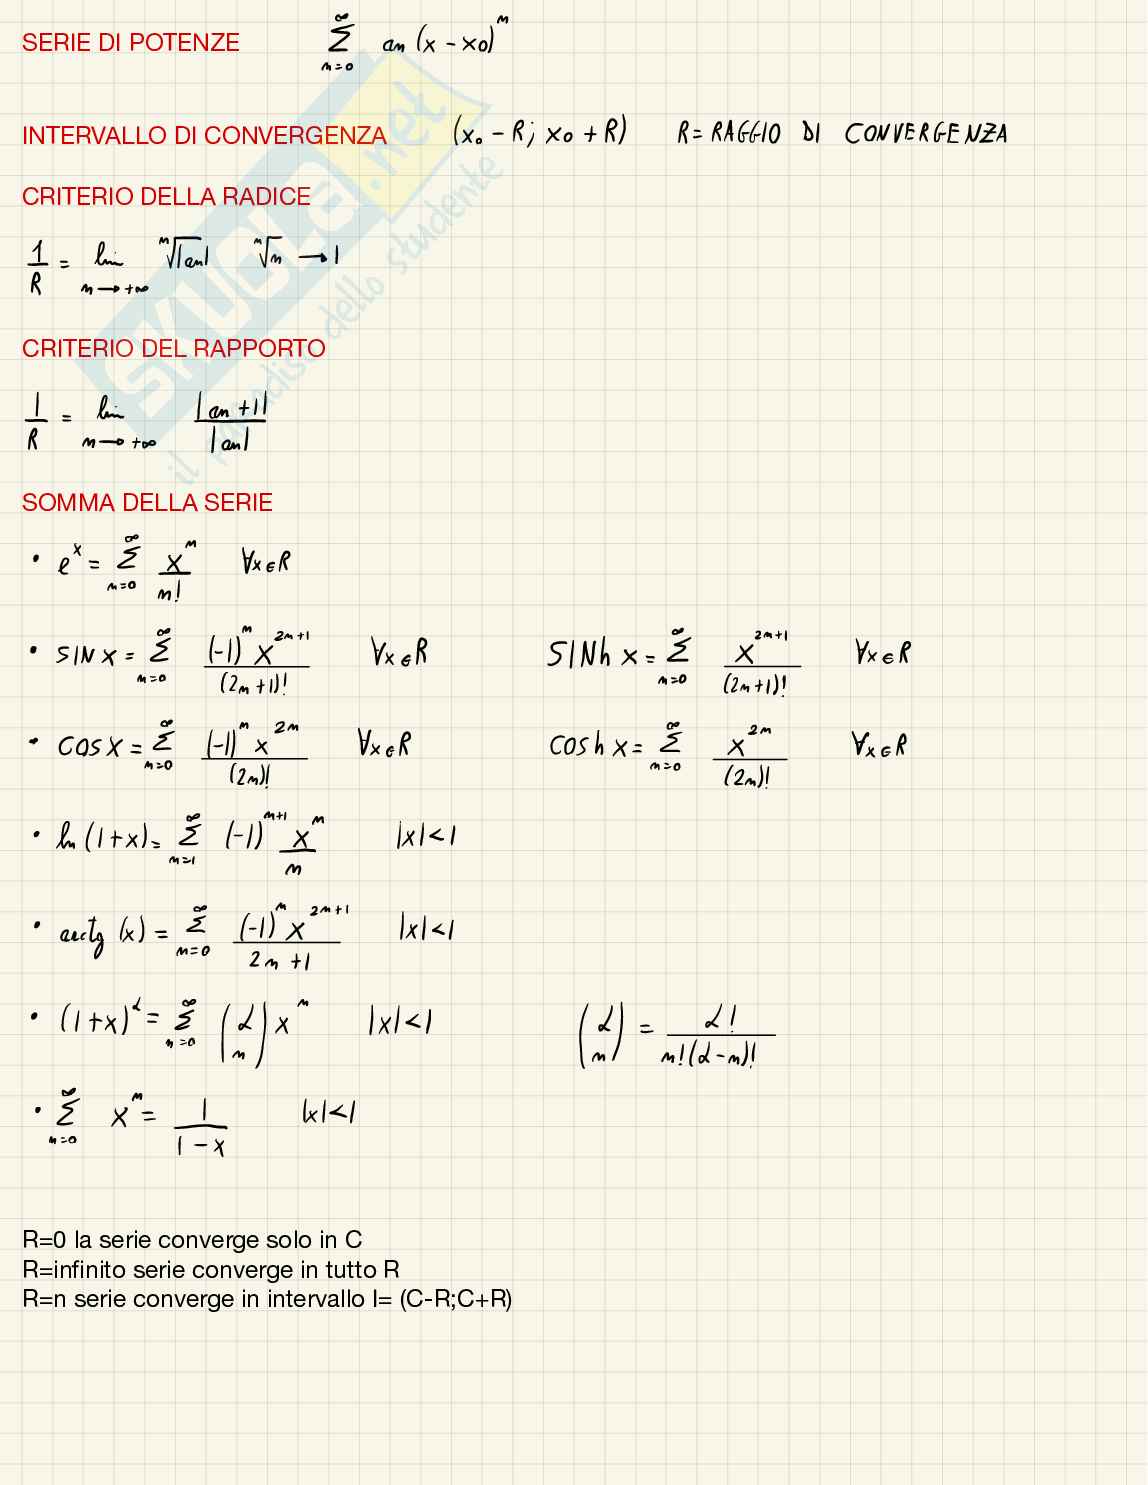 SERIE DI POTENZE ∑_{n=0}^{∞} an (x - x0)^n
INTERVALLO DI CONVERGENZA (x0 - R; x0 + R) R = RAGGIO DI CONVERGENZA
CRITERIO DELLA RADICE
1/R = lim_{n→+∞} ⁿ√|an| ⁿ√n → 1
CRITERIO DEL RAPPORTO
1/R = lim_{n→+∞} |an+1| / |an|
SOMMA DELLA SERIE
• e^x = ∑_{n=0}^{∞} x^n / n! ∀x∈R
• SIN x = ∑_{n=0}^{∞} (-1)^n x^{2n+1} / (2n+1)! ∀x∈R SINh x = ∑_{n=0}^{∞} x^{2n+1} / (2n+1)! ∀x∈R
• COS x = ∑_{n=0}^{∞} (-1)^n x^{2n} / (2n)! ∀x∈R COSh x = ∑_{n=0}^{∞} x^{2n} / (2n)! ∀x∈R
• ln (1+x) = ∑_{n=1}^{∞} (-1)^{n+1} x^n / n |x|<1
• arctg (x) = ∑_{n=0}^{∞} (-1)^n x^{2n+1} / 2n+1 |x|<1
• (1+x)^α = ∑_{n=0}^{∞} (α n) x^n |x|<1 (α n) = α! / n!(α-n)!
• ∑_{n=0}^{∞} x^n = 1 / 1-x |x|<1
R=0 la serie converge solo in C
R=infinito serie converge in tutto R
R=n serie converge in intervallo I= (C-R;C+R)
SKUOLA.net
il paradiso dello studente